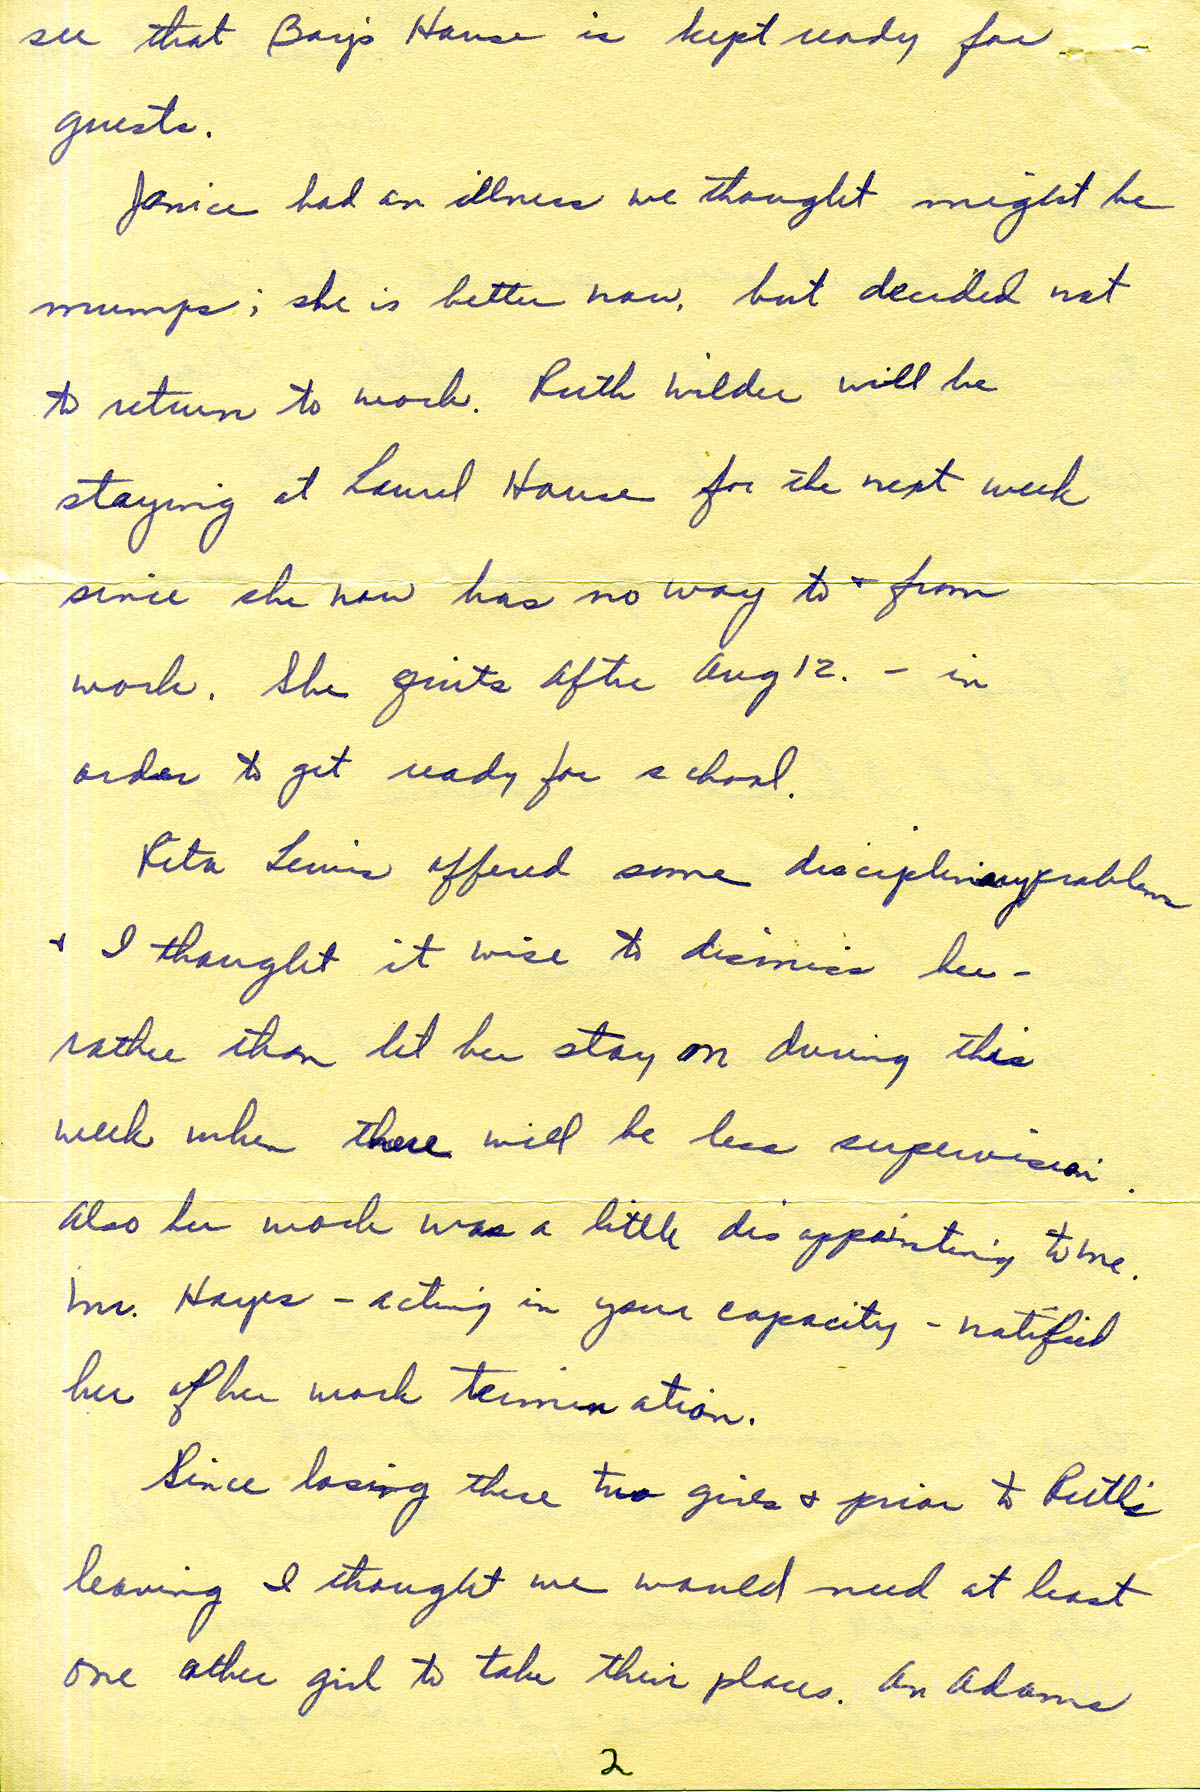 see that Boy's House is kept ready for
guests.
Janice had an illness we thought might be
mumps; she is better now, but decided not
to return to work. Ruth Wilder will be
staying at Laurel House for the next week
since she now has no way to & from
work. She quits after Aug 12. - in
order to get ready for school.
Rita Lewis offered some disciplinary problems
& I thought it wise to dismiss her -
rather than let her stay on during this
week when there will be less supervision.
Also her work was a little disappointing to me.
Mr. Hayes - acting in your capacity - notified
her of her work termination.
Since losing these two girls & prior to Ruth's
leaving I thought we would need at least
one other girl to take their places. An Adams
2